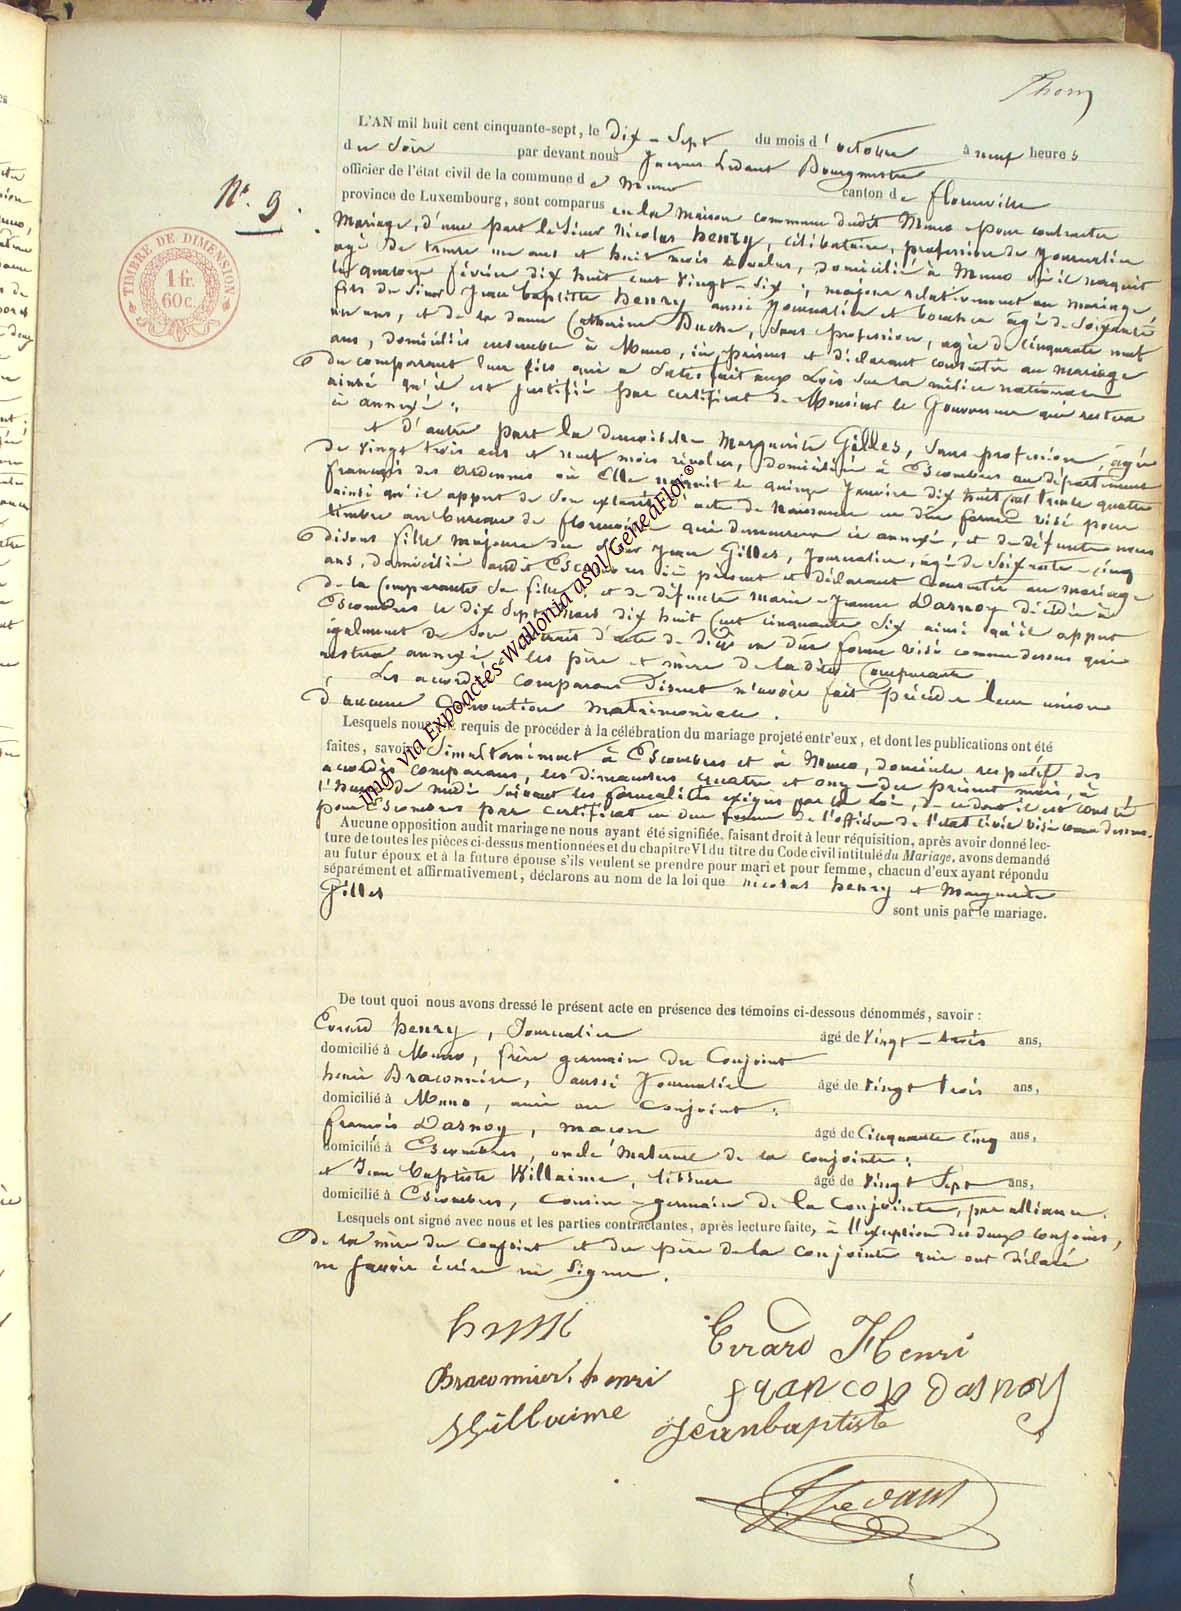 N° 9.
TIMBRE DE DIMENSION
1 fr.
60c.
L'AN mil huit cent cinquante-sept, le Dix-Sept du mois d'octobre à neuf heures
du Soir par devant nous Jacques Ledant Bourgmestre
officier de l'état civil de la commune de Muno canton de florenville
province de Luxembourg, sont comparus en la maison commune dudit Muno pour contracter
Mariage, d'une part le Sieur Nicolas henry, célibataire, profession de Journalier
agé de trente un ans et huit mois révolus, domicilié à Muno où il naquit
le quatorze février dix huit cent vingt-six; majeur relativement au mariage
fils du Sieur Jean baptiste henry aussi Journalier et agé de Soixante
un ans, et de la dame Catherine Duche, Sans profession, agée de cinquante neuf
ans, domiciliés ensemble à Muno, ici présens et déclarant consentir au mariage
du comparant leur fils qui a Satisfait aux Lois Sur la milice nationale
ainsi qu'il est justifié par certificat de Monsieur le Gouverneur qui restera
ci annexé;
et d'autre part la demoiselle Marguerite Gilles, Sans profession, agée
de vingt trois ans et neuf mois révolus, domiciliée à Escombres au département
français des ardennes où Elle naquit le quinze Janvier dix huit cent trente quatre
ainsi qu'il appert de Son extrait d'acte de Naissance en due forme visé pour
timbre au bureau de florenville qui demeurera ci annexé, et de défunte nous
disons fille majeure du Sieur Jean Gilles, Journalier, agé de Soixante-cinq
ans, domicilié audit Escombres ici présent et déclarant Consentir au mariage
de la Comparante Sa fille et de défunte marie-Jeanne Dasnoy décédée à
Escombres le dix Sept Mars dix huit Cent cinquante Six ainsi qu'il appert
également de Son extrait d'acte de Décès en due forme visé comme dessus qui
restera annexé; les père et mère de la dite Comparante.
Les accordés comparans Disent n'avoir fait précéder leur union
d'aucune Convention Matrimoniale.
Lesquels nous ont requis de procéder à la célébration du mariage projeté entr'eux, et dont les publications ont été
faites, savoir: Simultanément à Escombres et à Muno, domicile respectif des
accordés comparans, les dimanches quatre et onze du présent mois, à
l'heure de midi Suivant les formalités exigées par la Loi, de ce dont il est constaté
pour Escombres par certificat en due forme de l'officier de l'état civil visé comme dessus.
Aucune opposition audit mariage ne nous ayant été signifiée, faisant droit à leur réquisition, après avoir donné lec-
ture de toutes les pièces ci-dessus mentionnées et du chapitre VI du titre du Code civil intitulé du Mariage, avons demandé
au futur époux et à la future épouse s'ils veulent se prendre pour mari et pour femme, chacun d'eux ayant répondu
séparément et affirmativement, déclarons au nom de la loi que Nicolas henry et Marguerite
Gilles
sont unis par le mariage.
De tout quoi nous avons dressé le présent acte en présence des témoins ci-dessous dénommés, savoir :
Evrard henry, Journalier âgé de Vingt-trois ans,
domicilié à Muno, frère germain du Conjoint
henri Braconnier, aussi Journalier âgé de Vingt trois ans,
domicilié à Muno, ami au Conjoint;
françois Dasnoy, maçon âgé de Cinquante cinq ans,
domicilié à Escombres, oncle Maternel de la conjointe;
et Jean baptiste Willaime, tisseur âgé de Vingt Sept ans,
domicilié à Escombres, cousin-germain de la Conjointe, par alliance.
Lesquels ont signé avec nous et les parties contractantes, après lecture faite, à l'exception des deux conjoints,
de la mère du conjoint et du père de la conjointe qui ont déclaré
ne Savoir écrire ni Signer.
Evrard Henri
Braconnier henri
françois dasnoy
Willaime
Jeanbaptiste
J. Ledant
img. via Expoactes-Wallonia asbl/GeneaFlor©